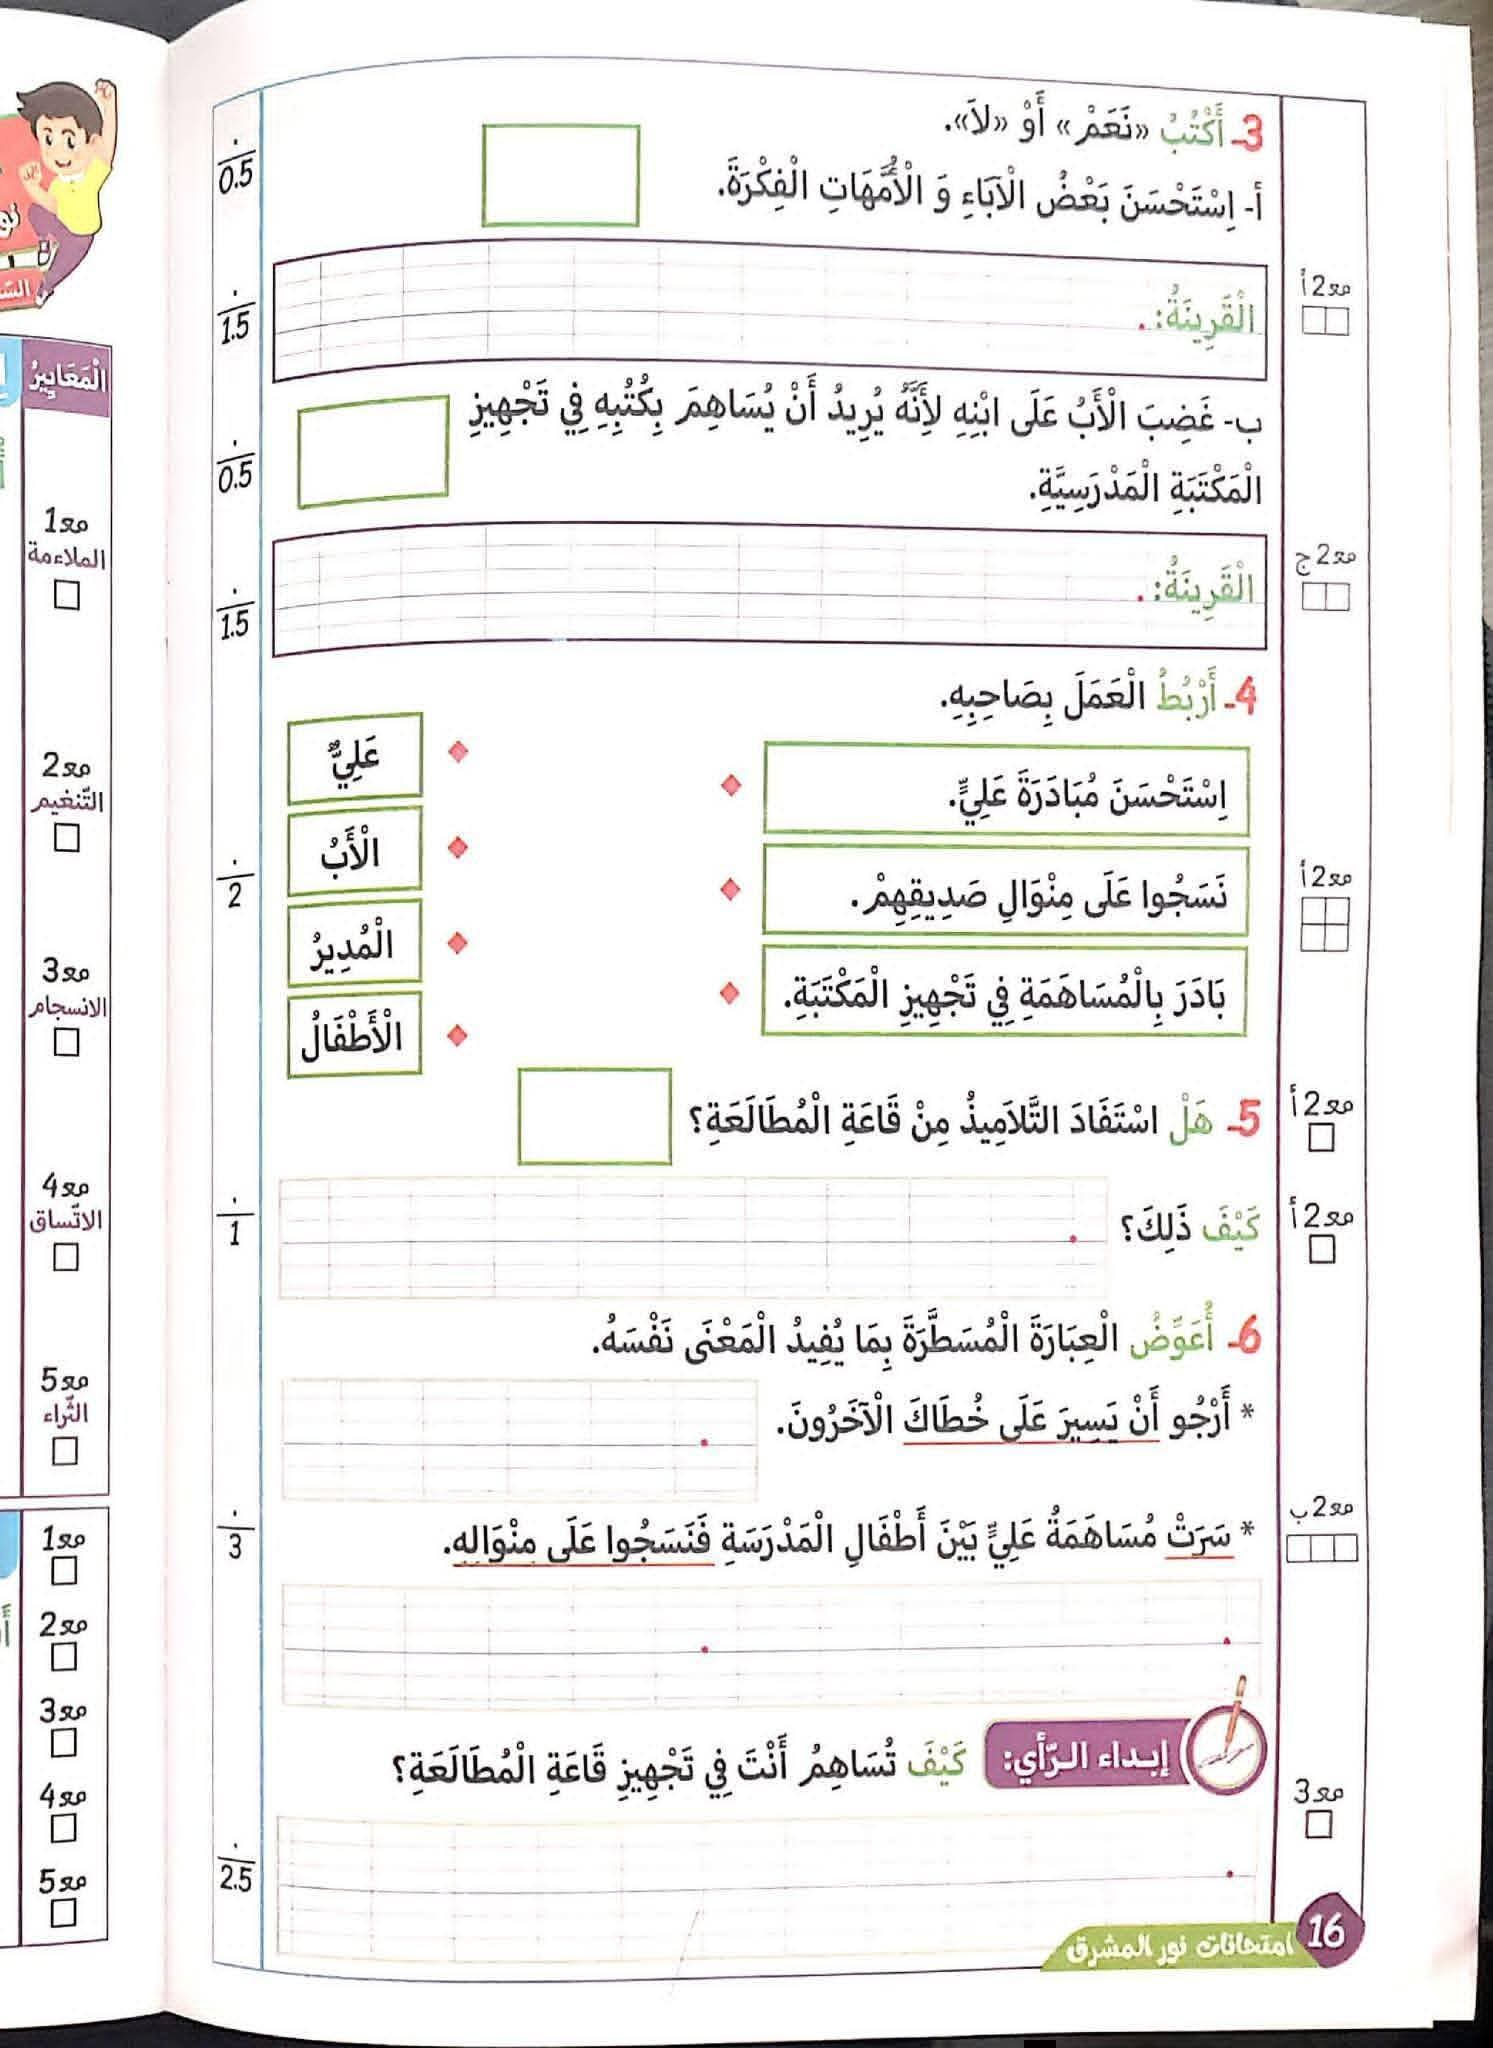 3- أَكْتُبُ «نَعَمْ» أَوْ «لاَ».
أ- اِسْتَحْسَنَ بَعْضُ الْآبَاءِ وَ الْأُمَّهَاتِ الْفِكْرَةَ.
0.5
مع2 أ
الْقَرِينَةُ:
1.5
ب- غَضِبَ الْأَبُ عَلَى ابْنِهِ لِأَنَّهُ يُرِيدُ أَنْ يُسَاهِمَ بِكُتُبِهِ فِي تَجْهِيزِ
الْمَكْتَبَةِ الْمَدْرَسِيَّةِ.
0.5
مع2 ج
الْقَرِينَةُ:
1.5
4- أَرْبُطُ الْعَمَلَ بِصَاحِبِهِ.
اِسْتَحْسَنَ مُبَادَرَةَ عَلِيٍّ.
نَسَجُوا عَلَى مِنْوَالِ صَدِيقِهِمْ.
بَادَرَ بِالْمُسَاهَمَةِ فِي تَجْهِيزِ الْمَكْتَبَةِ.
عَلِيٌّ
الْأَبُ
الْمُدِيرُ
الْأَطْفَالُ
مع2 أ
2
5- هَلْ اسْتَفَادَ التَّلاَمِيذُ مِنْ قَاعَةِ الْمُطَالَعَةِ؟
مع2 أ
كَيْفَ ذَلِكَ؟
مع2 أ
1
6- أُعَوِّضُ الْعِبَارَةَ الْمُسَطَّرَةَ بِمَا يُفِيدُ الْمَعْنَى نَفْسَهُ.
* أَرْجُو أَنْ يَسِيرَ عَلَى خُطَاكَ الْآخَرُونَ.
* سَرَتْ مُسَاهَمَةُ عَلِيٍّ بَيْنَ أَطْفَالِ الْمَدْرَسَةِ فَنَسَجُوا عَلَى مِنْوَالِهِ.
مع2 ب
3
إبداء الرّأي: كَيْفَ تُسَاهِمُ أَنْتَ فِي تَجْهِيزِ قَاعَةِ الْمُطَالَعَةِ؟
مع3
2.5
16
امتحانات نور المشرق
الْمَعَايِيرُ
مع1
الملاءمة
مع2
التّنغيم
مع3
الانسجام
مع4
الاتّساق
مع5
الثّراء
مع1
مع2
مع3
مع4
مع5